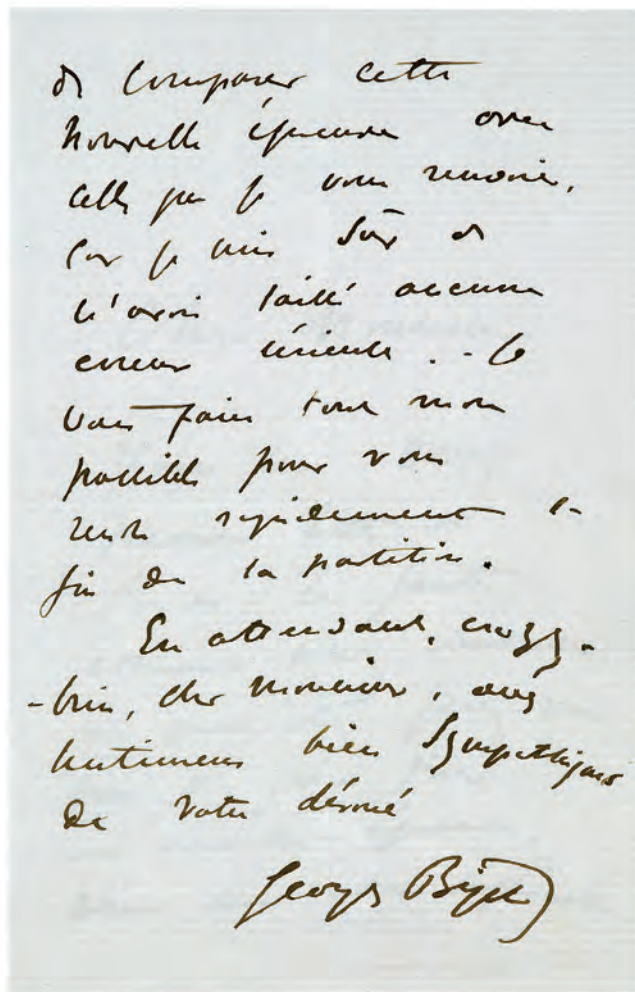 de comparer cette
nouvelle épreuve avec
celle que je vous renvoie,
car je suis sûr de
n'avoir laissé aucune
erreur sérieuse. - Je
vais faire tout mon
possible pour vous
rendre rapidement la
fin de la partition.
En attendant, croyez-
-bien, cher monsieur, aux
sentimens bien sympathiques
de votre dévoué
Georges Bizet